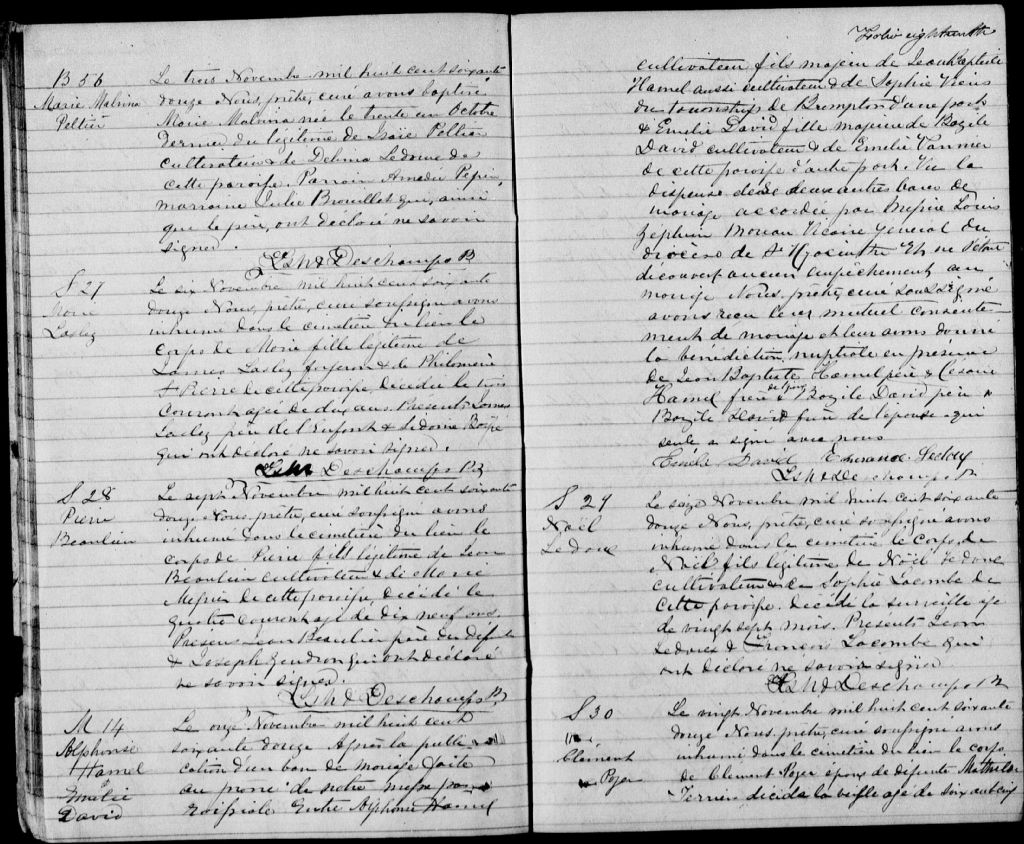 B 56
Marie Malvina
Peltier
Le trois Novembre mil huit cent soixante
douze Nous, prêtre, curé avons baptisé
Marie Malvina née le trente un Octobre
dernier du légitime de Isaïe Peltier
cultivateur & de Delima Ledoux de
cette paroisse. Parrain Amedée Pepin,
marraine Julie Brouillet qui, ainsi
que le père, ont déclaré ne savoir
signer.
Deschamps Ptr
S 27
Marie
Laslez
Le six Novembre mil huit cent soixante
douze Nous, prêtre, curé soussigné avons
inhumé dans le cimetière du lieu le
corps de Marie fille légitime de
James Laslez forgeron & de Philomène
St Pierre de cette paroisse décédée le trois
courant agée de dix ans. Présents James
Laslez père de l'enfant &
qui ont déclaré ne savoir signer.
Deschamps Ptr
S 28
Pierre
Beaulieu
Le sept Novembre mil huit cent soixante
douze Nous, prêtre, curé soussigné avons
inhumé dans le cimetière du lieu le
corps de Pierre fils légitime de Jean
Beaulieu cultivateur & de Marie
de cette paroisse décédé le
quatre courant agé de dix neuf ans.
Présens Jean Beaulieu père du défunt
& Joseph Gendron qui ont déclaré
ne savoir signer.
Deschamps Ptr
M 14
Alphonse
Hamel
&
Emélie
David
Le onze Novembre mil huit cent
soixante douze Après la publi
cation d'un ban de mariage faite
au prone de notre messe pa
roissiale Entre Alphonse Hamel
Folio eighteenth
cultivateur fils majeur de Jean Baptiste
Hamel aussi cultivateur & de Sophie
du township de Brompton d'une part
& Emélie David fille majeure de Bazile
David cultivateur & de Emélie
de cette paroisse d'autre part. Vu la
dispense de deux autres bans de
mariage accordée par Messire Louis
Zéphirin Moreau Vicaire Général du
diocèse de St Hyacinthe Et ne s'étant
découvert aucun empêchement au
mariage Nous, prêtre, curé soussigné
avons reçu leur mutuel consente-
ment de mariage et leur avons donné
la bénédiction nuptiale en présence
de Jean Baptiste Hamel père & Césaire
Hamel frère de l'époux & Bazile David père &
Bazile David frère de l'épouse qui
seule a signé avec nous
Emélie David
Deschamps Ptr
S 29
Noël
Ledoux
Le seize Novembre mil huit cent soixante
douze Nous, prêtre, curé soussigné avons
inhumé dans le cimetière le corps de
Noël fils légitime de Noël Ledoux
cultivateur & de Sophie Lacombe de
cette paroisse. Décédé la surveille agé
de vingt sept mois. Présents Jean
Ledoux & François Lacombe qui
ont déclaré ne savoir signer
Deschamps Ptr
S 30
Clément
Poyer
Le vingt Novembre mil huit cent soixante
douze Nous, prêtre, curé soussigné avons
inhumé dans le cimetière du lieu le corps
de Clément Poyer époux de défunte Mathilde
Terrien décédé la veille agé de soixante cinq